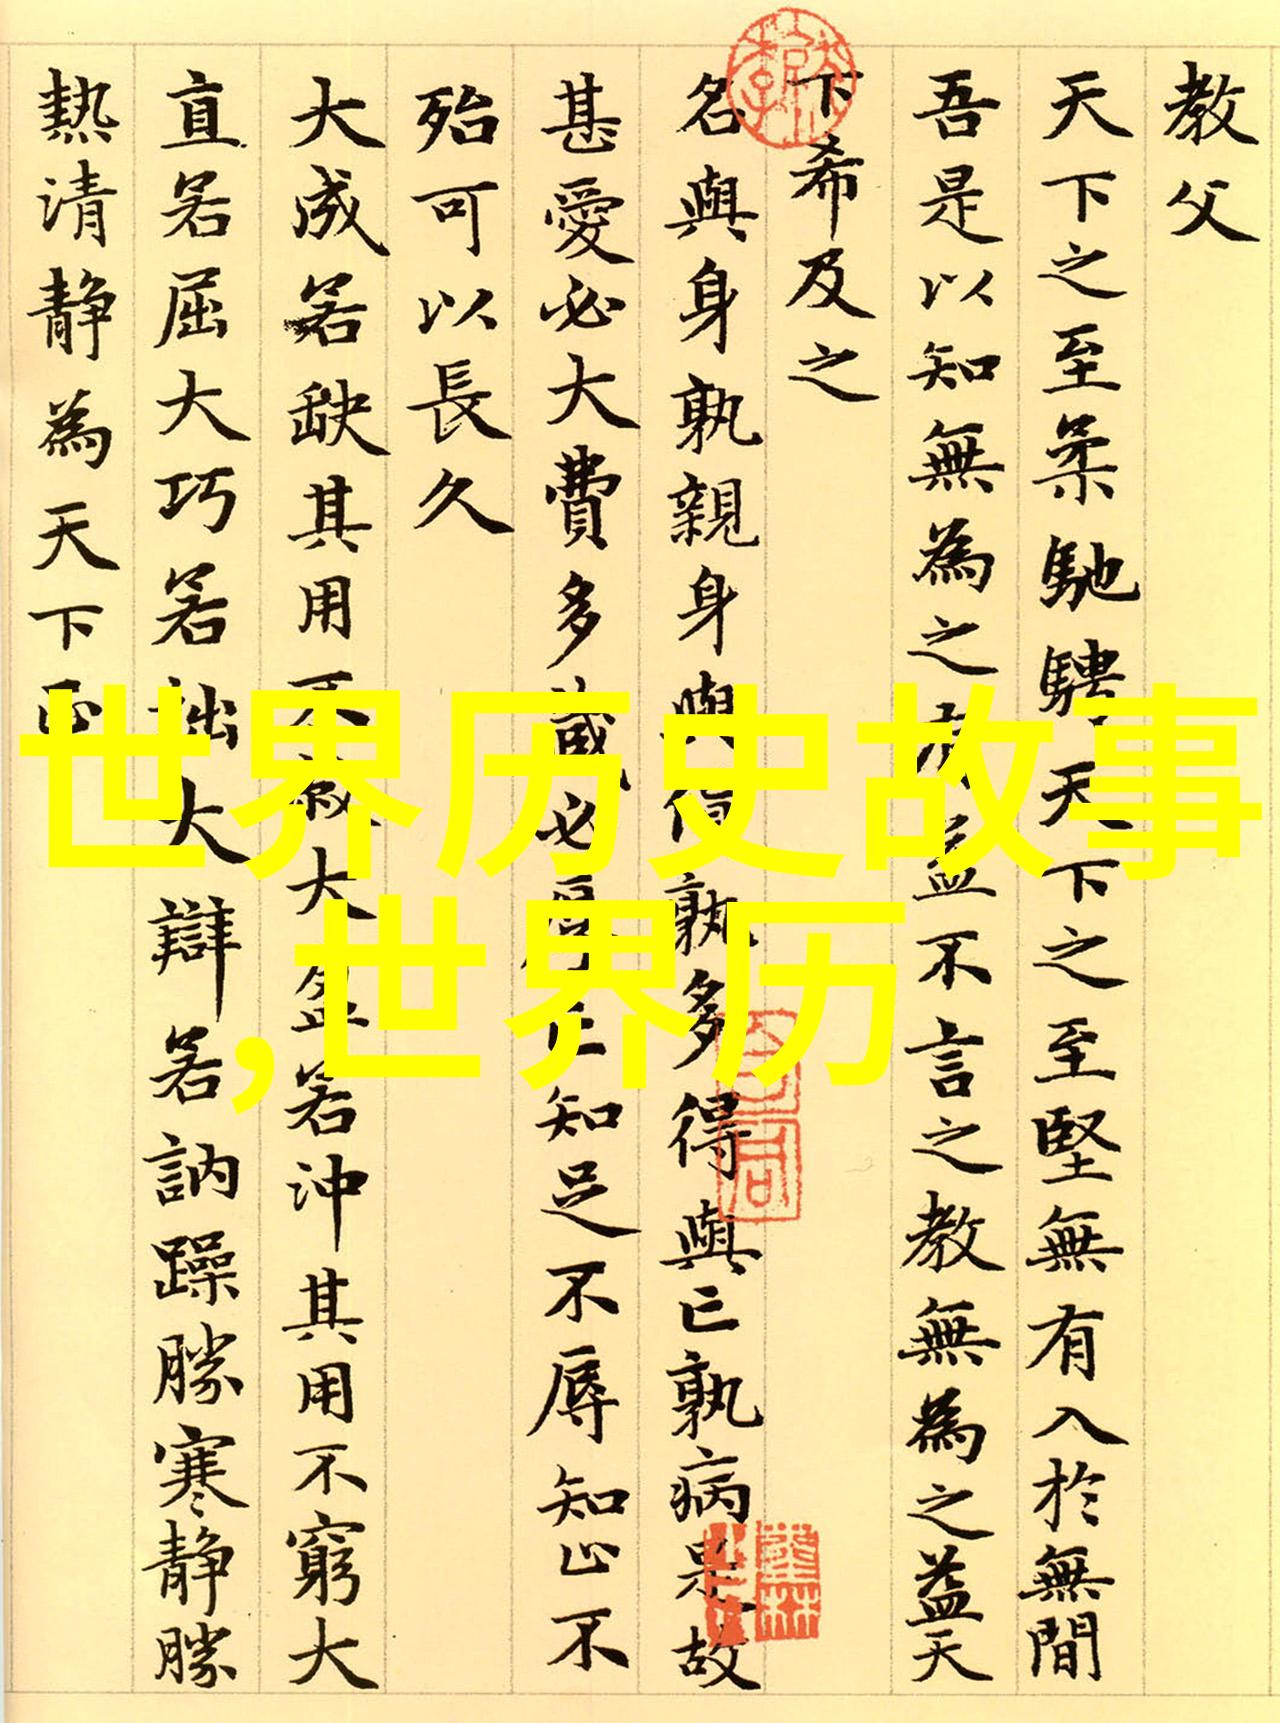 教父
天下之至柔馳騁天下之至堅無有入於無間
吾是以知無為之有益不言之教無為之益天
下希及之
名與身孰親身與貨孰多得與亡孰病是故
甚愛必大費多藏必厚亡知足不辱知止不
殆可以長久
大成若缺其用不敝大盈若沖其用不窮大
直若屈大巧若詘大辯若訥躁勝寒靜勝
熱清靜為天下正
世界历史故事
,世界历